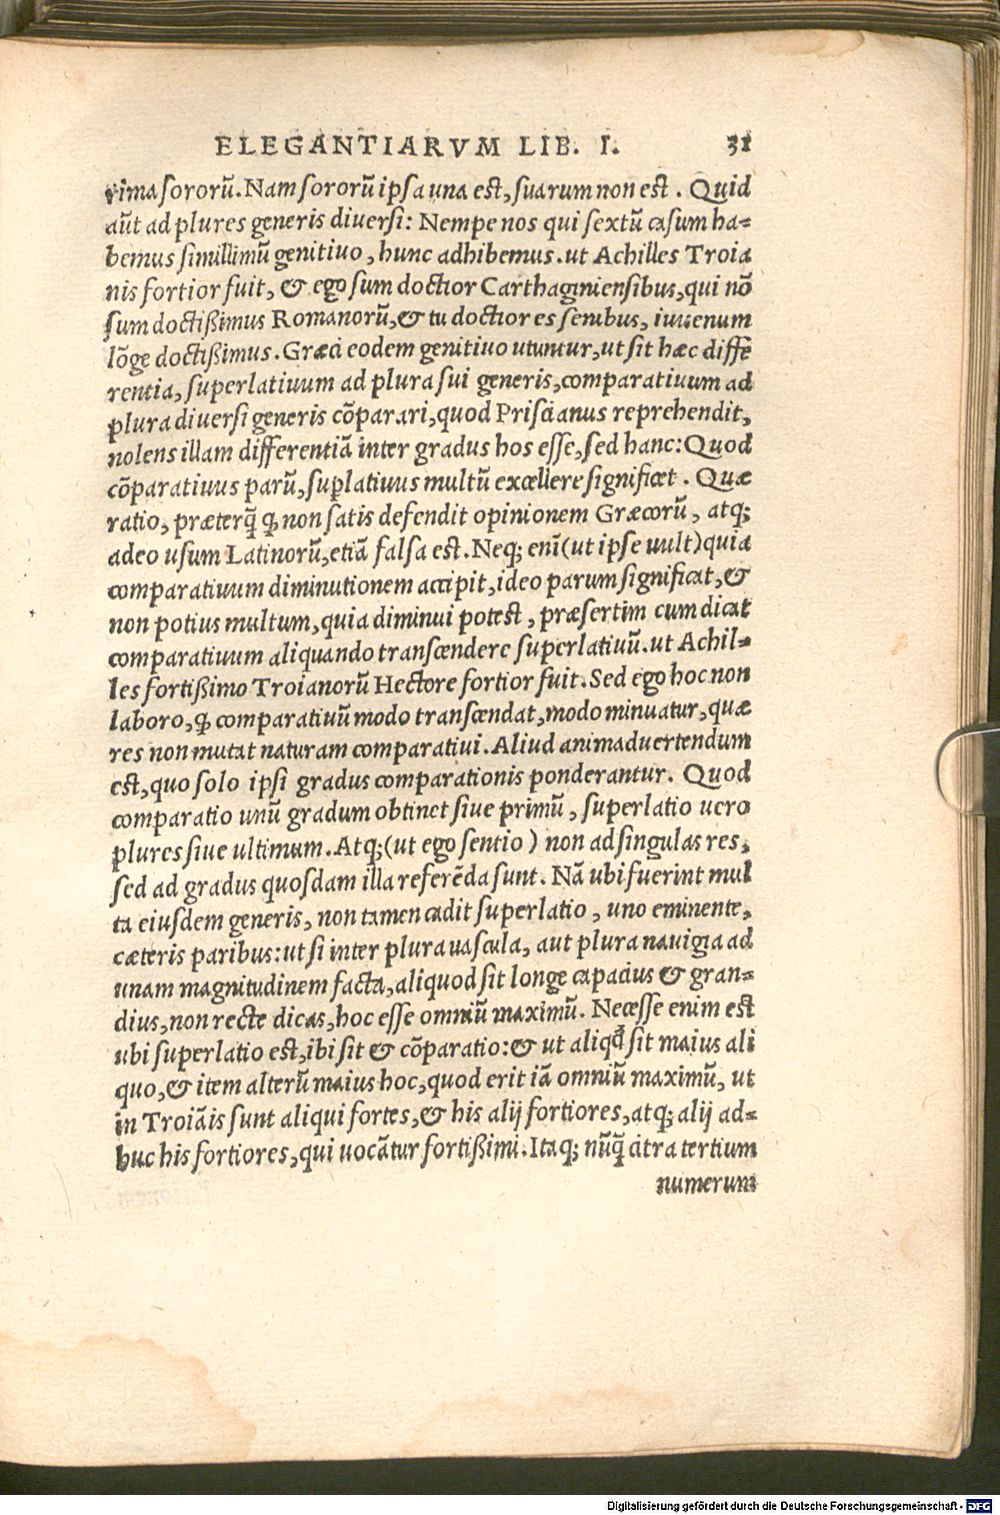 ELEGANTIARVM LIB. I. 31
rima sororũ. Nam sororũ ipsa una est, suarum non est. Quid
aũt ad plures generis diuersi: Nempe nos qui sextũ casum ha-
bemus simillimũ genitiuo, hunc adhibemus. ut Achilles Troia
nis fortior fuit, & ego sum doctior Carthaginiensibus, qui nõ
sum doctißimus Romanorũ, & tu doctior es senibus, iuuenum
lõge doctißimus. Græci eodem genitiuo utuntur, ut sit hæc diffẽ
rentia, superlatiuum ad plura sui generis, comparatiuum ad
plura diuersi generis cõparari, quod Priscianus reprehendit,
nolens illam differentiã inter gradus hos esse, sed hanc: Quod
cõparatiuus parũ, suplatiuus multũ excellere significet. Quæ
ratio, præterq̃ ꝙ non satis defendit opinionem Græcorũ, atq;
adeo usum Latinorũ, etiã falsa est. Neq; enĩ (ut ipse uult) quia
comparatiuum diminutionem accipit, ideo parum significat, &
non potius multum, quia diminui potest, præsertim cum dicat
comparatiuum aliquando transcendere superlatiuũ. ut Achil-
les fortißimo Troianorũ Hectore fortior fuit. Sed ego hoc non
laboro, ꝙ comparatiuũ modo transcendat, modo minuatur, quæ
res non mutat naturam comparatiui. Aliud animaduertendum
est, quo solo ipsi gradus comparationis ponderantur. Quod
comparatio unũ gradum obtinet siue primũ, superlatio uero
plures siue ultimum. Atq; (ut ego sentio) non ad singulas res,
sed ad gradus quosdam illa referẽda sunt. Nã ubi fuerint mul
ta eiusdem generis, non tamen cadit superlatio, uno eminente,
cæteris paribus: ut si inter plura uascula, aut plura nauigia ad
unam magnitudinem facta, aliquod sit longe capacius & gran-
dius, non recte dicas, hoc esse omniũ maximũ. Necesse enim est
ubi superlatio est, ibi sit & cõparatio: & ut aliqđ sit maius ali
quo, & item alterũ maius hoc, quod erit iã omniũ maximũ, ut
in Troiãis sunt aliqui fortes, & his alij fortiores, atq; alij ad-
huc his fortiores, qui uocãtur fortißimi. Itaq; nũq̃ citra tertium
numerum
Digitalisierung gefördert durch die Deutsche Forschungsgemeinschaft - DFG